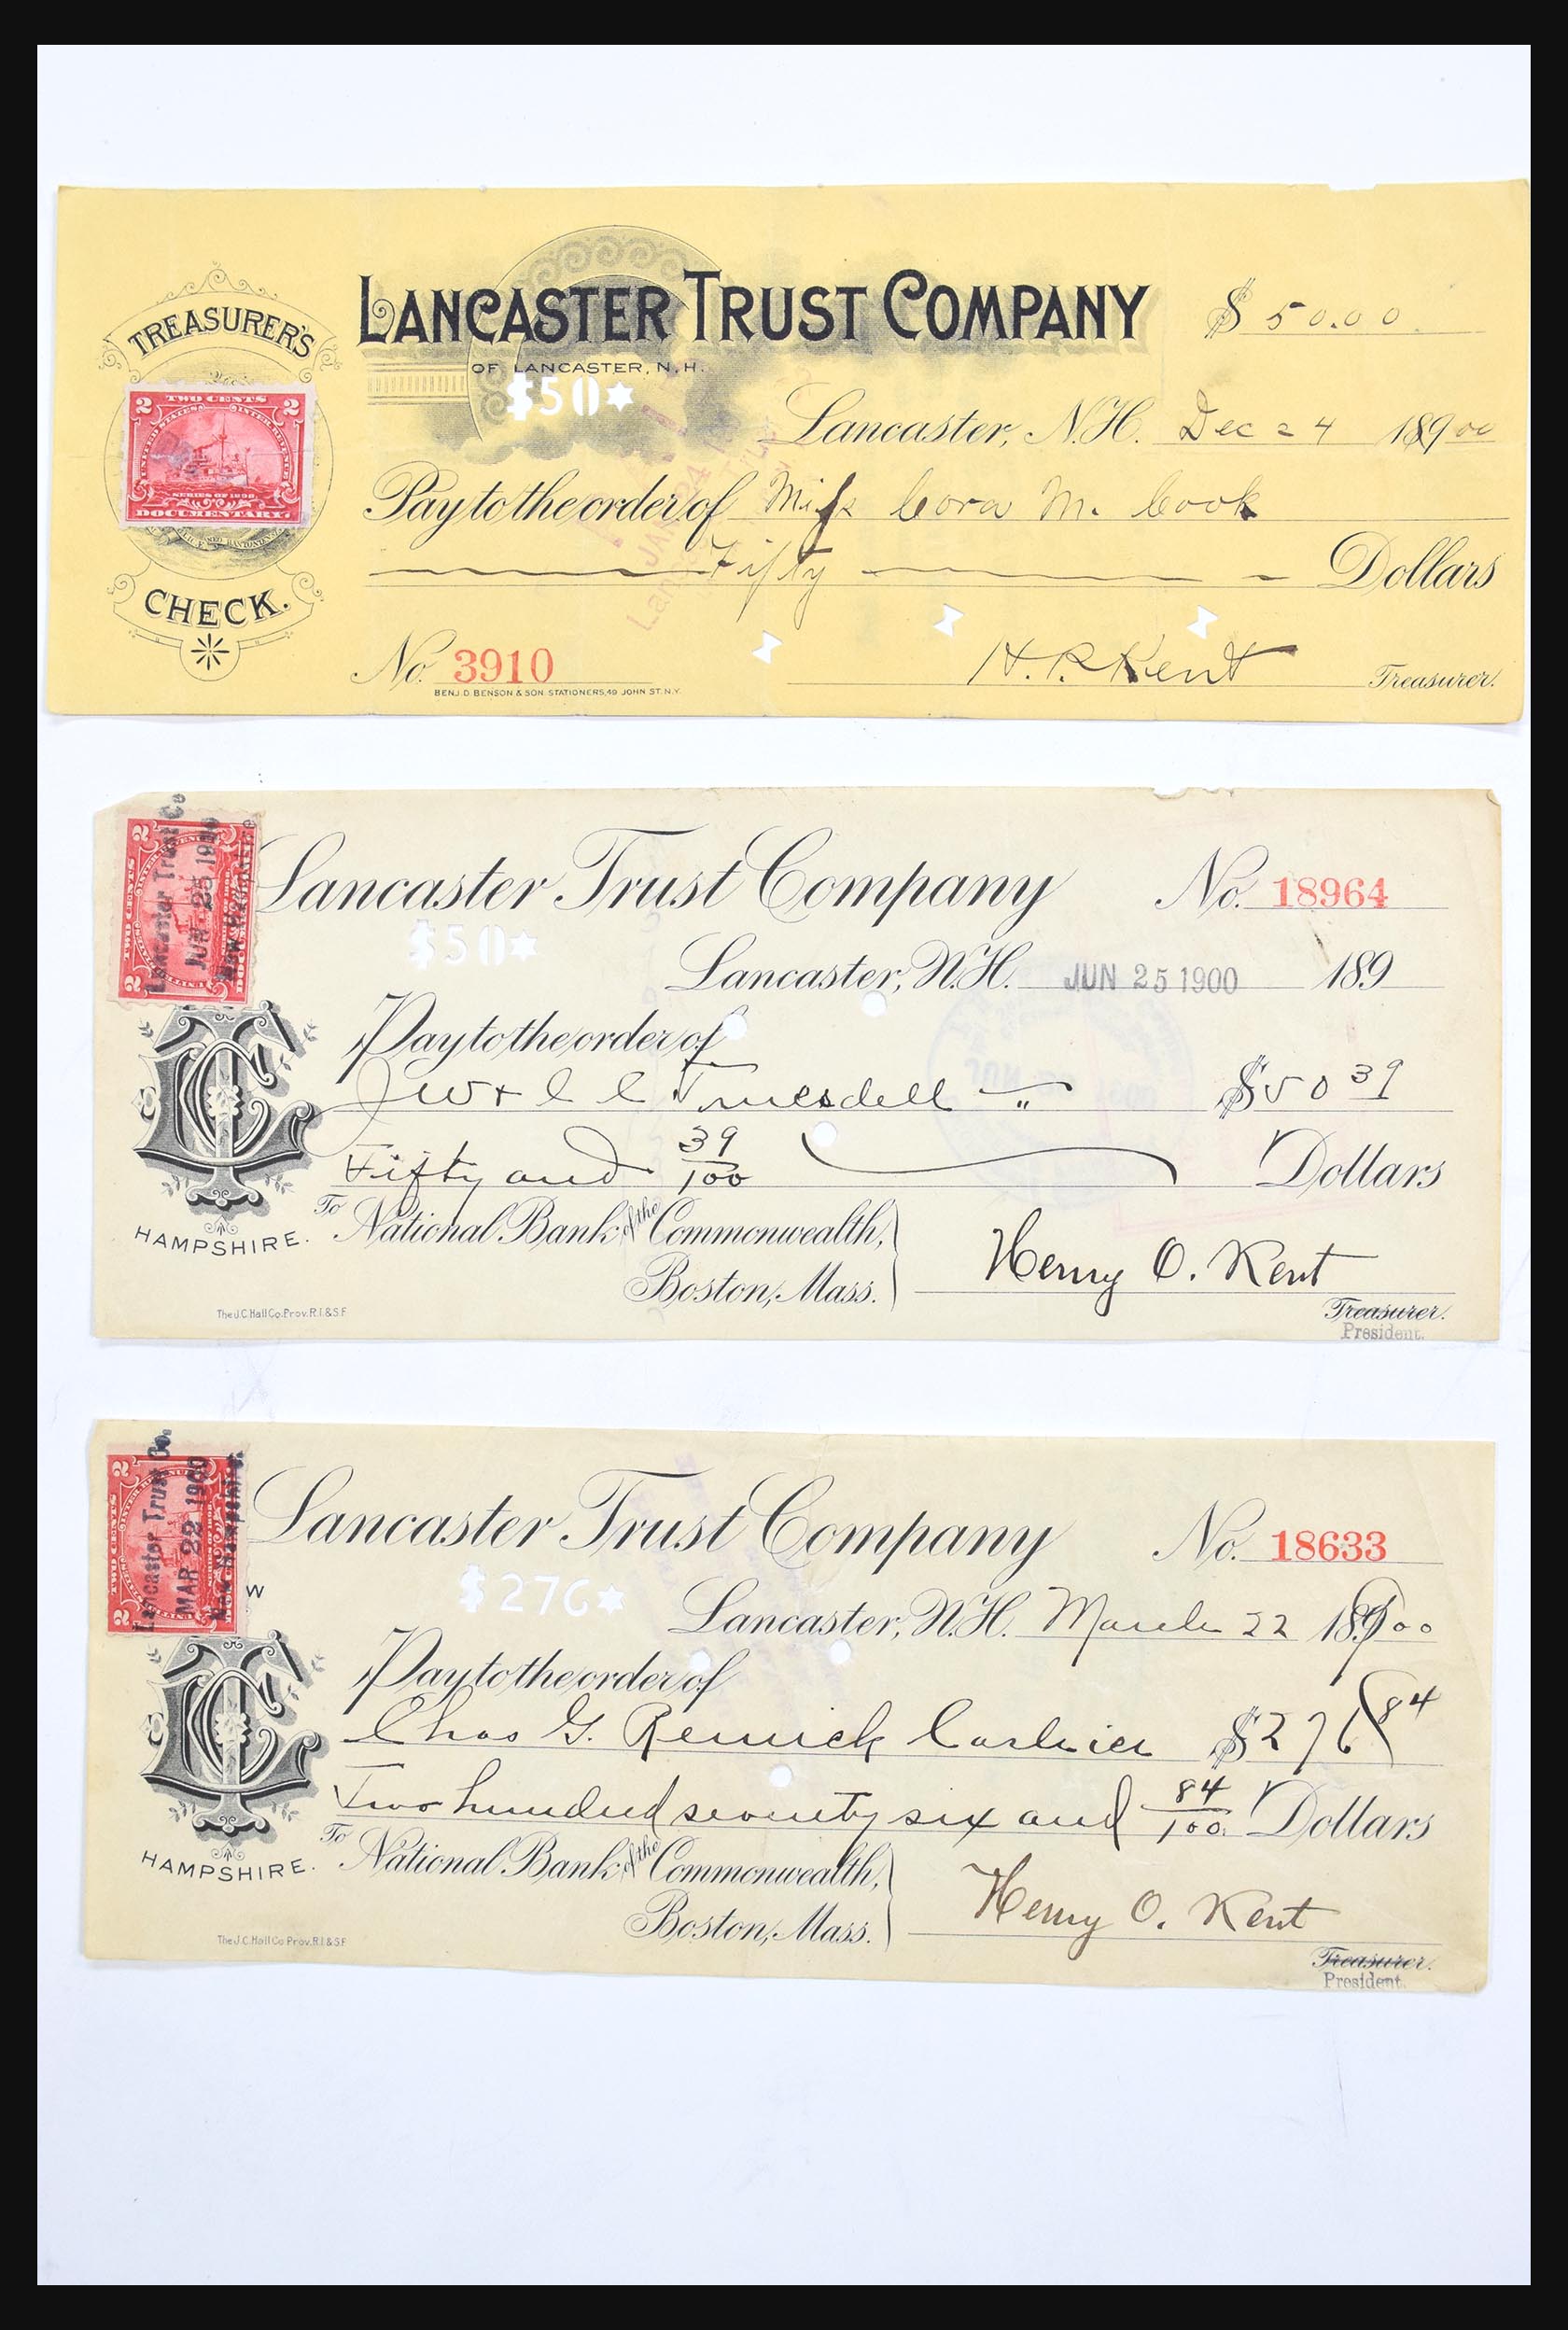 TREASURER'S
LANCASTER TRUST COMPANY
$ 50.00
OF LANCASTER, N.H.
$50
2 TWO CENTS 2
UNITED STATES INTER. REVENUE
SERIES OF 1898.
DOCUMENTARY.
Lancaster, N.H. Dec 24 18900
Pay to the order of Miss Cora M. Cook
Fifty Dollars
CHECK.
No. 3910
H. P. Kent Treasurer.
BENJ. D. BENSON & SON. STATIONERS, 49 JOHN ST. N.Y.
Lancaster Trust Co
JUN 25 1900
New Hampshire
Lancaster Trust Company No. 18964
$50
Lancaster, N.H. JUN 25 1900 189
Pay to the order of
J W & C C Truesdell $50 39
Fifty and 39/100 Dollars
HAMPSHIRE.
To National Bank of the Commonwealth,
Boston, Mass.
Henry O. Kent
Treasurer.
President.
The J.C. Hall Co. Prov. R.I. & S.F.
Lancaster Trust Co.
MAR 22 1900
New Hampshire
Lancaster Trust Company No. 18633
$276
W
Lancaster, N.H. March 22 18900
Pay to the order of
Chas G. Remick Cashier $276 84
Two hundred seventy six and 84/100 Dollars
HAMPSHIRE.
To National Bank of the Commonwealth,
Boston, Mass.
Henry O. Kent
Treasurer.
President.
The J.C. Hall Co. Prov. R.I. & S.F.